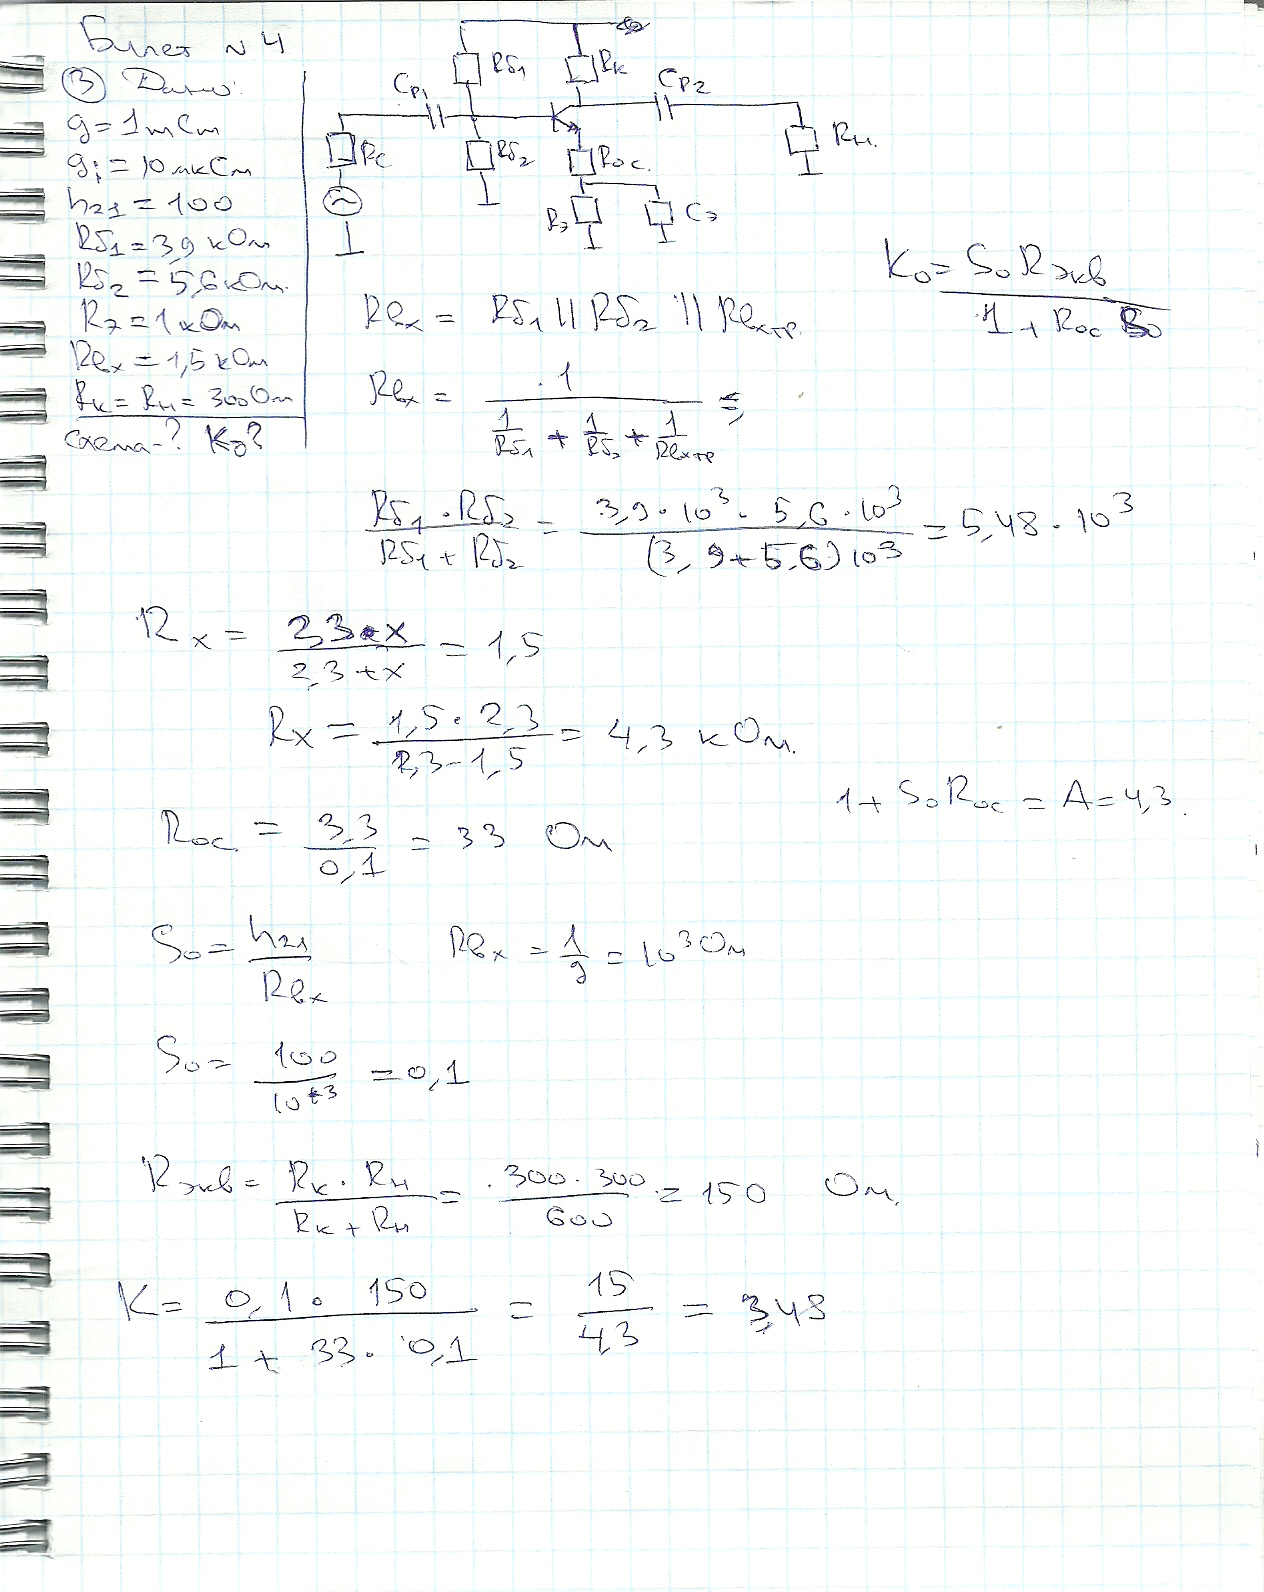 Билет N 4
③ Дано:
g = 1 mСм
gi = 10 мкСм
h21 = 100
Rб1 = 3,9 кОм
Rб2 = 5,6 кОм.
Rэ = 1 кОм
Rвх = 1,5 кОм
Rк = Rн = 300 Ом
Схема-? K0?
Rб1 Rк Cр1 Cр2
Rс Rб2 Rос. Rн.
Rэ Cэ
K0 = S0 Rэкв / 1 + Rос S0
Rвх = Rб1 || Rб2 || Rвхтр.
Rвх = 1 / (1/Rб1 + 1/Rб2 + 1/Rвхтр) =
Rб1 · Rб2 / Rб1 + Rб2 = 3,9 · 10³ · 5,6 · 10³ / (3,9 + 5,6) 10³ = 5,48 · 10³
Rх = 2,3 · x / 2,3 + x = 1,5
Rx = 1,5 · 2,3 / 2,3 - 1,5 = 4,3 кОм.
1 + S0 Rос = A = 4,3.
Rос = 3,3 / 0,1 = 33 Ом
S0 = h21 / Rвх Rвх = 1/g = 10³ Ом
S0 = 100 / 10⁺³ = 0,1
Rэкв = Rк · Rн / Rк + Rн = 300 · 300 / 600 = 150 Ом.
K = 0,1 · 150 / 1 + 33 · 0,1 = 15 / 4,3 = 3,48